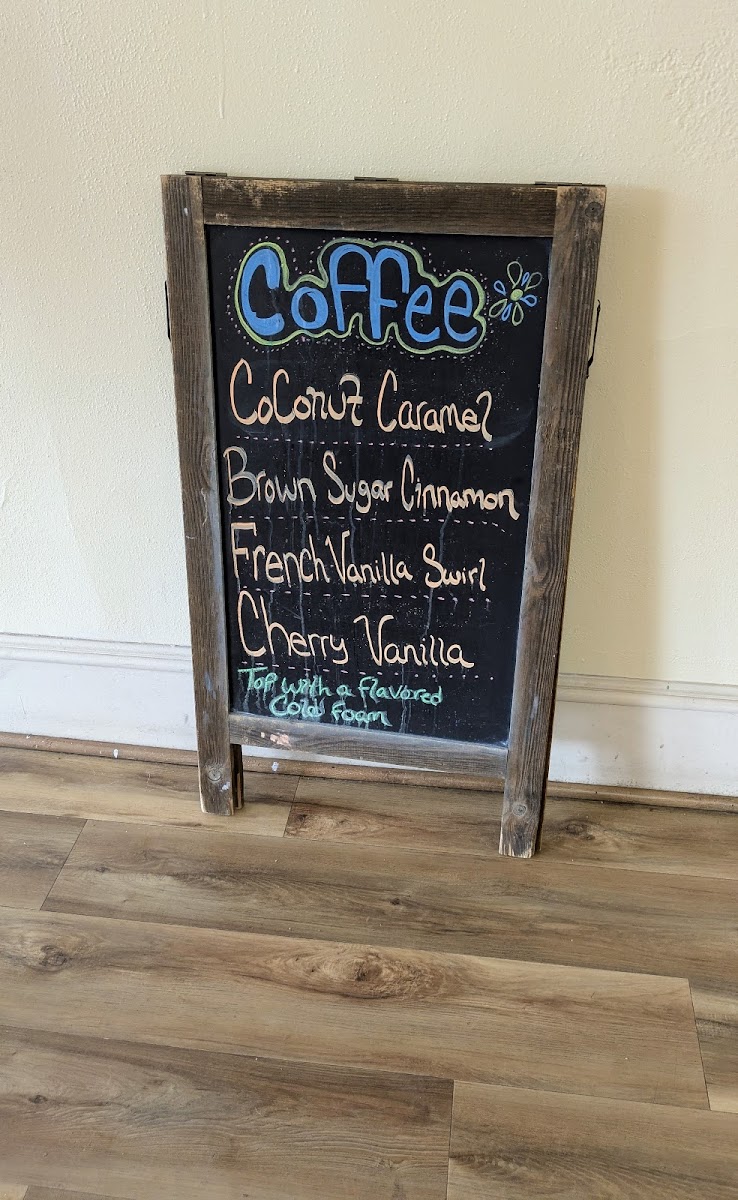 Coffee
Coconut Caramel
Brown Sugar Cinnamon
French Vanilla Swirl
Cherry Vanilla
Top with a flavored
Cold foam